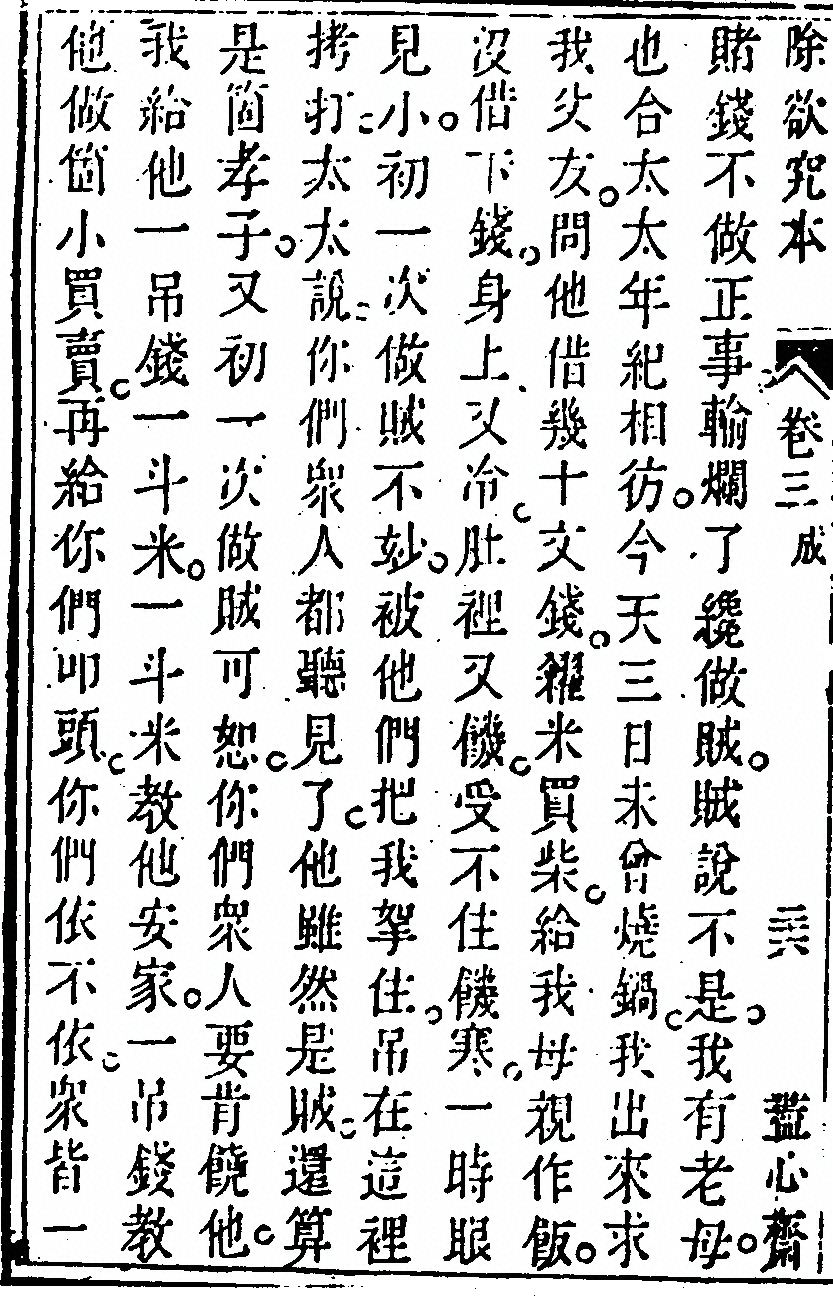 除欲究本 卷三 成 三六 藎心齋
賭錢不做正事輸爛了纔做賊。賊說不是。我有老母。
也合太太年紀相彷。今天三日未曾燒鍋。我出來求
我女友。問他借幾十文錢。糴米買柴。給我母親作飯。
沒借下錢。身上又冷。肚裡又饑。受不住饑寒。一時眼
見小。初一次做賊不妙。被他們把我拏住。吊在這裡
拷打。太太說。你們衆人都聽見了。他雖然是賊。還算
是箇孝子。又初一次做賊可恕。你們衆人要肯饒他。
我給他一吊錢一斗米。一斗米教他安家。一吊錢教
他做箇小買賣。再給你們叩頭。你們依不依。衆皆一